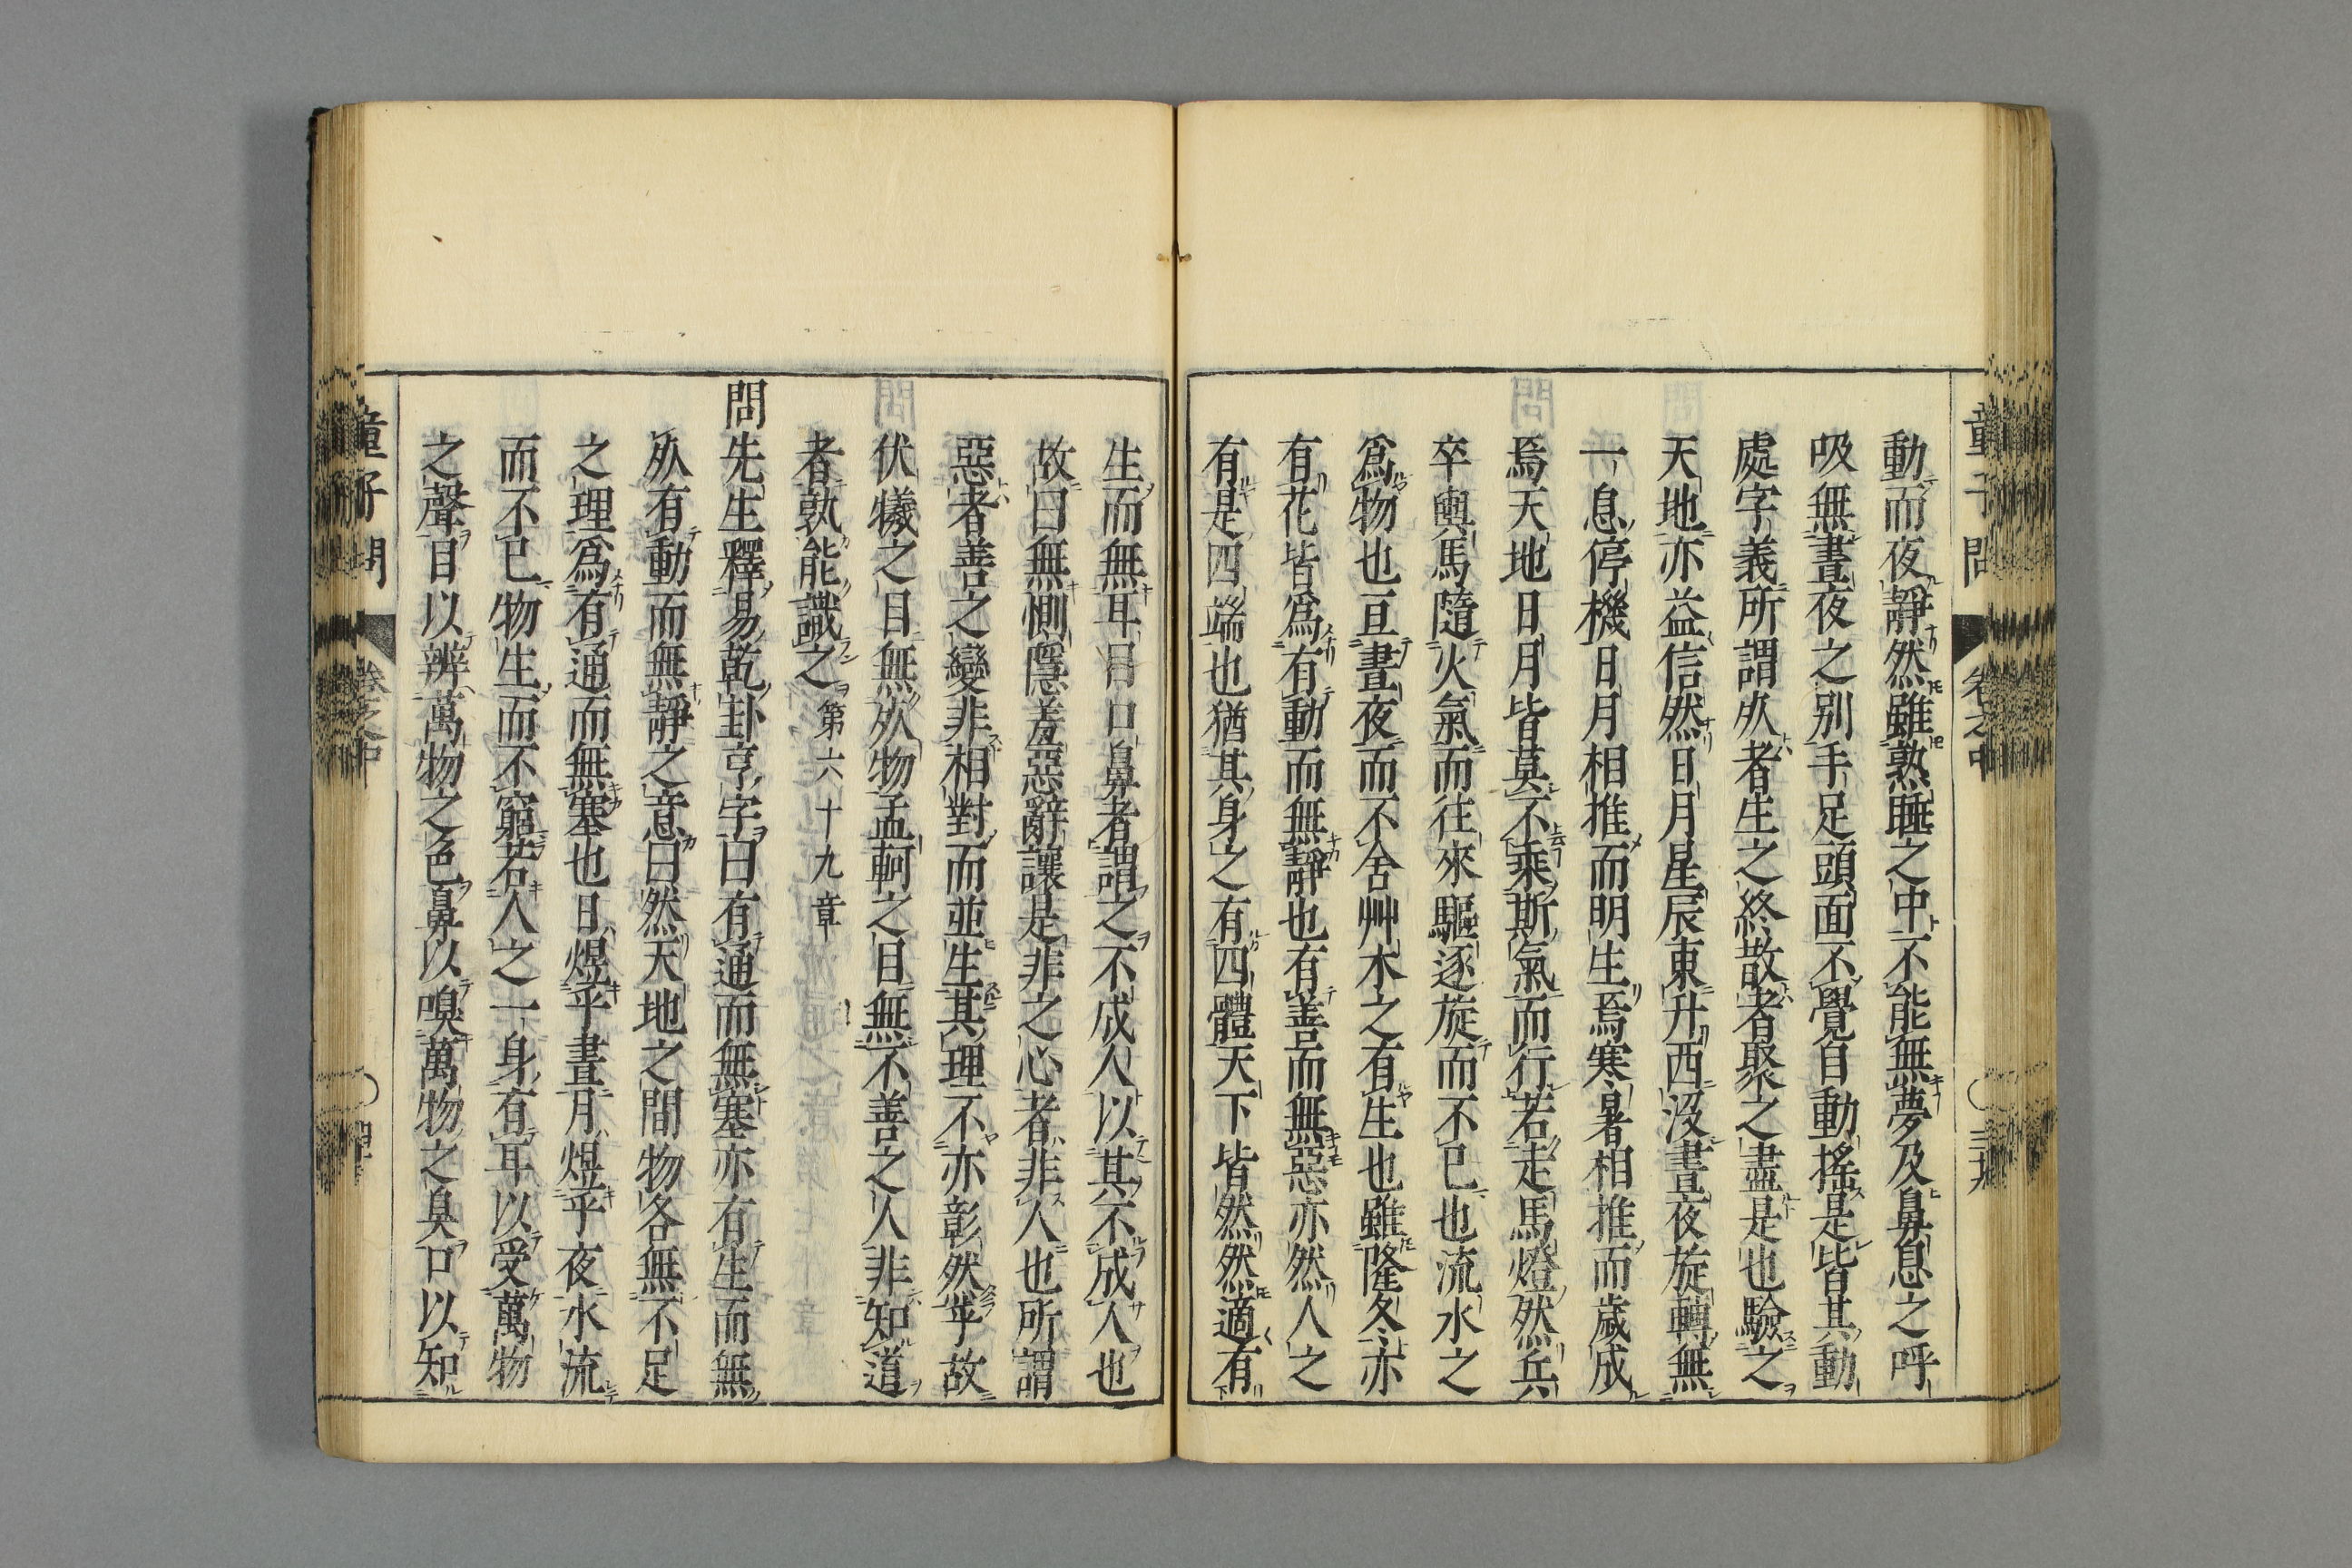 動而夜靜然雖熟睡之中不能無夢及鼻息之呼
吸無晝夜之別手足頭面不覺自動搖是皆其動
處字義所謂死者生之終散者聚之盡是也驗之
天地亦益信然日月星辰東升西沒晝夜旋轉無
一息停機日月相推而明生焉寒暑相推而歲成
焉天地日月皆莫不乘斯氣而行若走馬燈然兵
卒輿馬隨火氣而往來驅逐旋而不已也流水之
爲物也亘晝夜而不舍艸木之有生也雖隆冬亦
有花皆爲有動而無靜也有善而無惡亦然人之
有是四端也猶其身之有四體天下皆然然適有
生而無耳目口鼻者謂之不成人以其不成人也
故曰無惻隱羞惡辭讓是非之心者非人也所謂
惡者善之變非相對而並生其理不亦彰然乎故
伏犧之目無死物孟軻之目無不善之人非知道
者孰能識之 第六十九章
問先生釋易乾卦亨字曰有通而無塞亦有生而無
死有動而無靜之意曰然天地之間物各無不足
之理爲有通而無塞也日煜乎晝月煜乎夜水流
而不已物生而不窮若人之一身有耳以受萬物
之聲目以辨萬物之色鼻以嗅萬物之臭口以知
童子問 卷之中